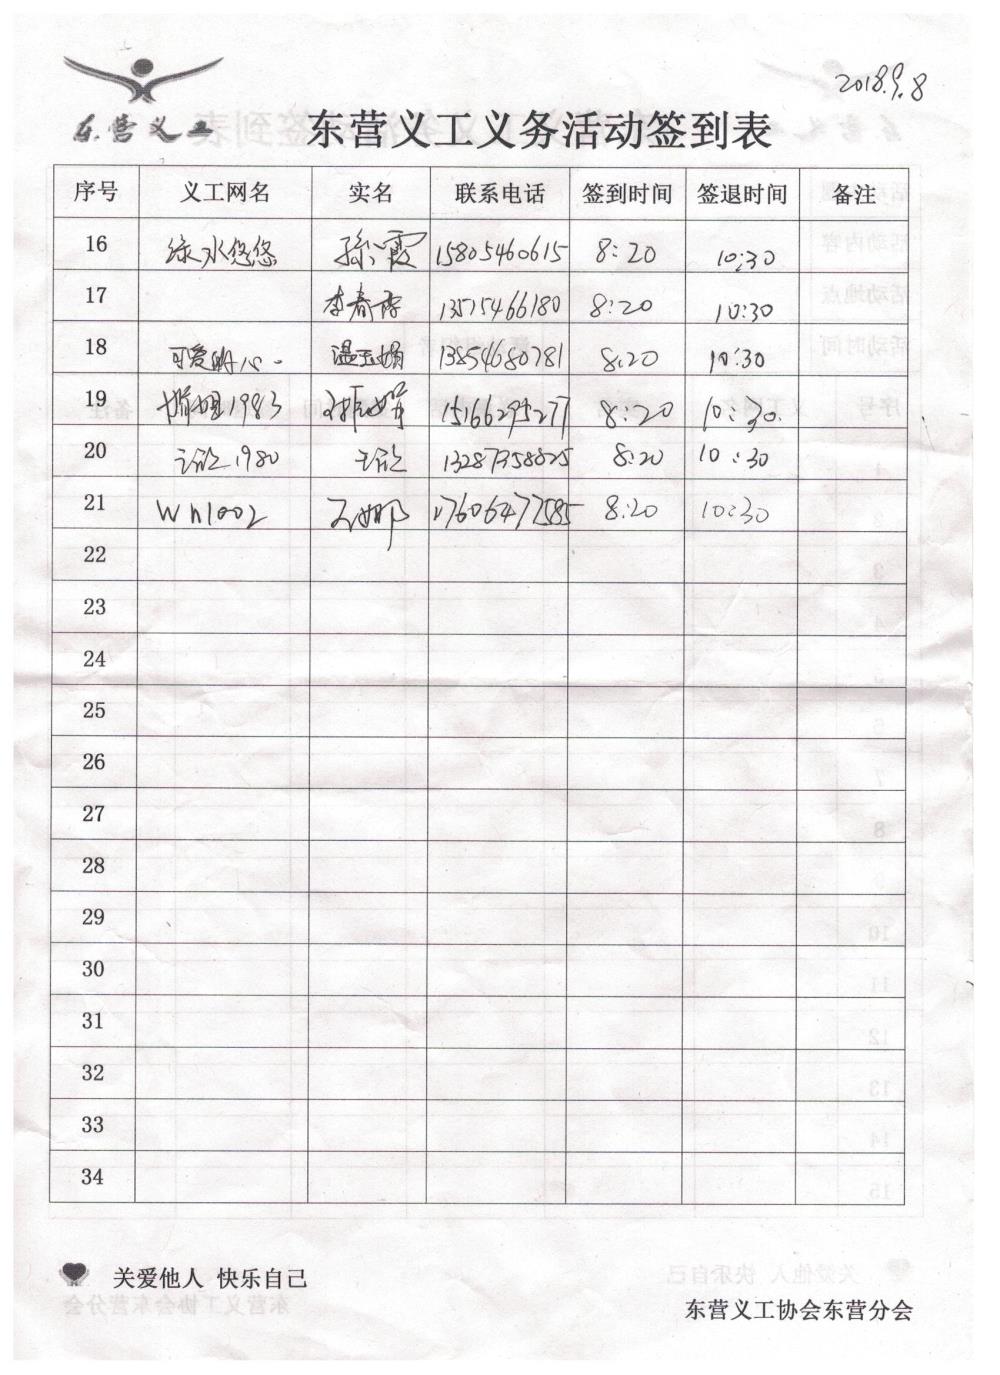 2018.9.8
东营义工 东营义工义务活动签到表
序号 义工网名 实名 联系电话 签到时间 签退时间 备注
16 绿水悠悠 孙霞 15805460615 8:20 10:30
17 李春 8:20 10:30
18 可爱的心 温玉娟 13854680781 8:20 10:30
19 1983 15166295277 8:20 10:30
20 1980 13287358825 8:20 10:30
21 wh1002 王娜 17606477585 8:20 10:30
22
23
24
25
26
27
28
29
30
31
32
33
34
关爱他人 快乐自己
东营义工协会东营分会